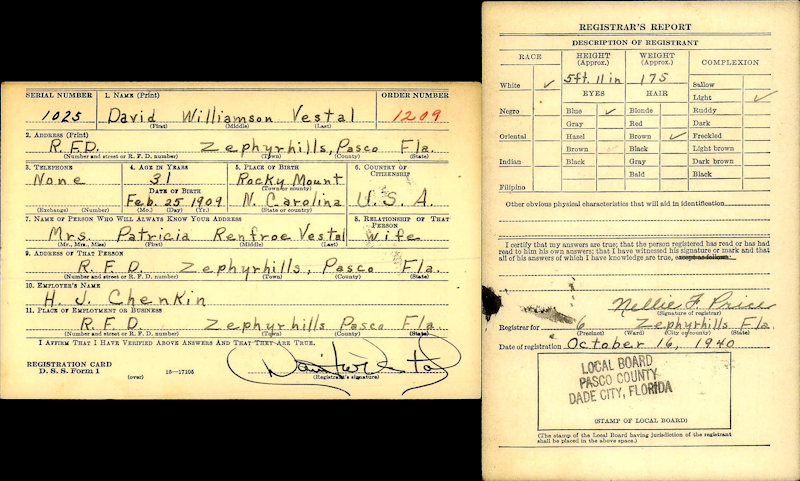 SERIAL NUMBER 1. NAME (Print) ORDER NUMBER
1025 David Williamson Vestal 1209
(First) (Middle) (Last)
2. ADDRESS (Print)
R.F.D. Zephyrhills, Pasco Fla.
(Number and street or R. F. D. number) (Town) (County) (State)
3. TELEPHONE 4. AGE IN YEARS 5. PLACE OF BIRTH 6. COUNTRY OF CITIZENSHIP
None 31 Rocky Mount
DATE OF BIRTH (Town or county)
Feb. 25 1909 N. Carolina U.S.A.
(Exchange) (Number) (Mo.) (Day) (Yr.) (State or country)
7. NAME OF PERSON WHO WILL ALWAYS KNOW YOUR ADDRESS 8. RELATIONSHIP OF THAT PERSON
Mrs. Patricia Renfroe Vestal Wife
(Mr., Mrs., Miss) (First) (Middle) (Last)
9. ADDRESS OF THAT PERSON
R.F.D. Zephyrhills, Pasco Fla.
(Number and street or R. F. D. number) (Town) (County) (State)
10. EMPLOYER'S NAME
H. J. Chenkin
11. PLACE OF EMPLOYMENT OR BUSINESS
R.F.D. Zephyrhills Pasco Fla.
(Number and street or R. F. D. number) (Town) (County) (State)
I AFFIRM THAT I HAVE VERIFIED ABOVE ANSWERS AND THAT THEY ARE TRUE.
REGISTRATION CARD
D. S. S. Form 1 (over) 16—17105 (Registrant's signature)
REGISTRAR'S REPORT
DESCRIPTION OF REGISTRANT
RACE HEIGHT (Approx.) WEIGHT (Approx.) COMPLEXION
White ✓ 5 ft. 11 in 175 Sallow
EYES HAIR Light ✓
Negro Blue ✓ Blonde Ruddy
Gray Red Dark
Oriental Hazel Brown ✓ Freckled
Brown Black Light brown
Indian Black Gray Dark brown
Bald Black
Filipino
Other obvious physical characteristics that will aid in identification
I certify that my answers are true; that the person registered has read or has had
read to him his own answers; that I have witnessed his signature or mark and that
all of his answers of which I have knowledge are true, except as follows:
Nellie F. Price
(Signature of registrar)
Registrar for 6 Zephyrhills Fla.
(Precinct) (Ward) (City or county) (State)
Date of registration October 16, 1940
LOCAL BOARD
PASCO COUNTY
DADE CITY, FLORIDA
(STAMP OF LOCAL BOARD)
(The stamp of the Local Board having jurisdiction of the registrant
shall be placed in the above space.)